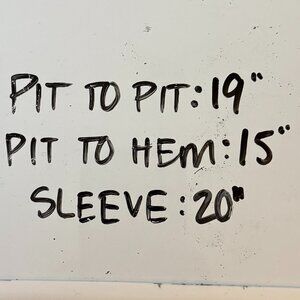 PIT TO PIT: 19"
PIT TO HEM: 15"
SLEEVE: 20"